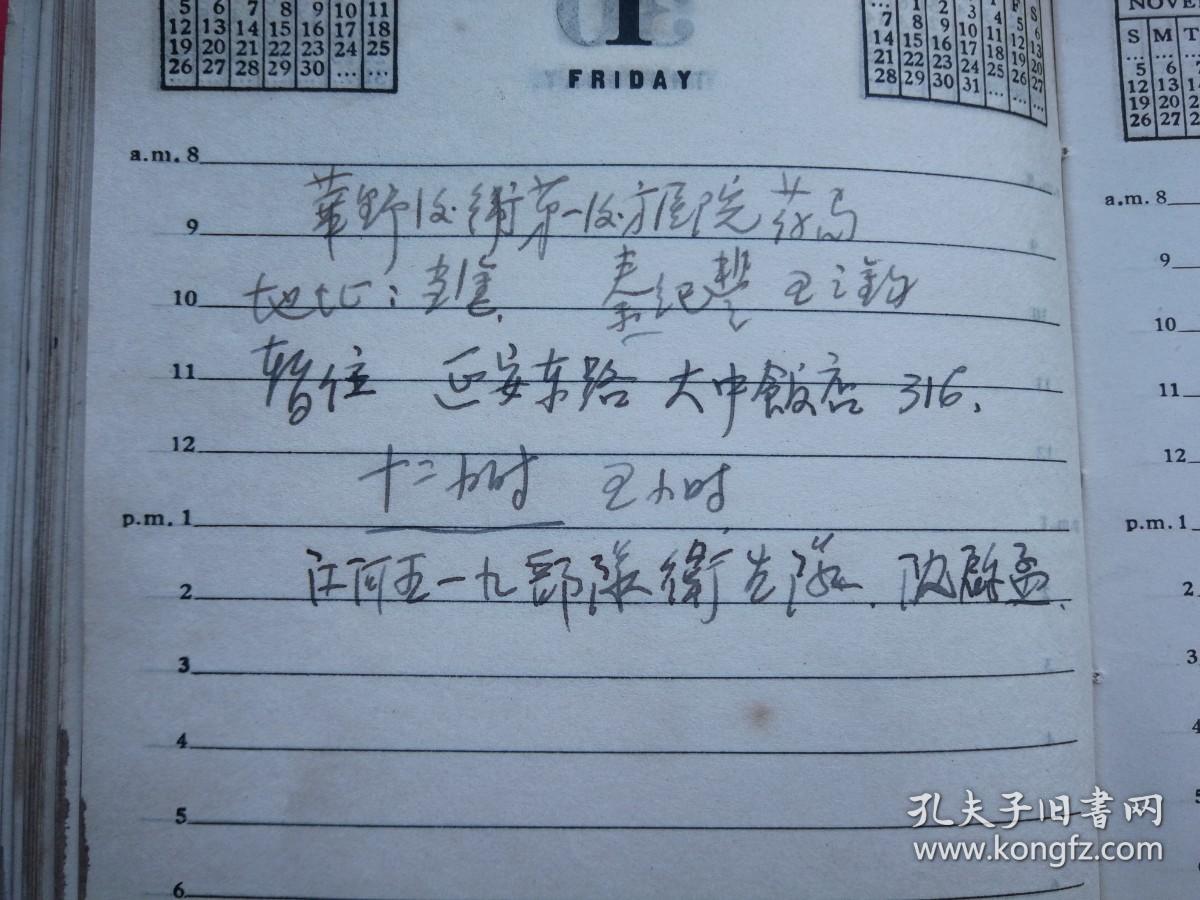 5 6 7 8 9 10 11
12 13 14 15 16 17 18
19 20 21 22 23 24 25
26 27 28 29 30 ... ...
1
FRIDAY
... 1 2 3 4 5 6
7 8 9 10 11 12 13
14 15 16 17 18 19 20
21 22 23 24 25 26 27
28 29 30 31 ... ... ...
a.m. 8
華野后衛第一后方医院药局
9
地址:
10
暫住 延安东路 大中飯店 316.
11
十二小时 五小时
12
p.m. 1
五一九部隊衛生隊.
2
3
4
5
6
NOVE
S M T
5 6 7
12 13 14
19 20 2
26 27 2
a.m. 8
9
10
11
12
p.m. 1
2
3
4
5
孔夫子旧书网
www.kongfz.com